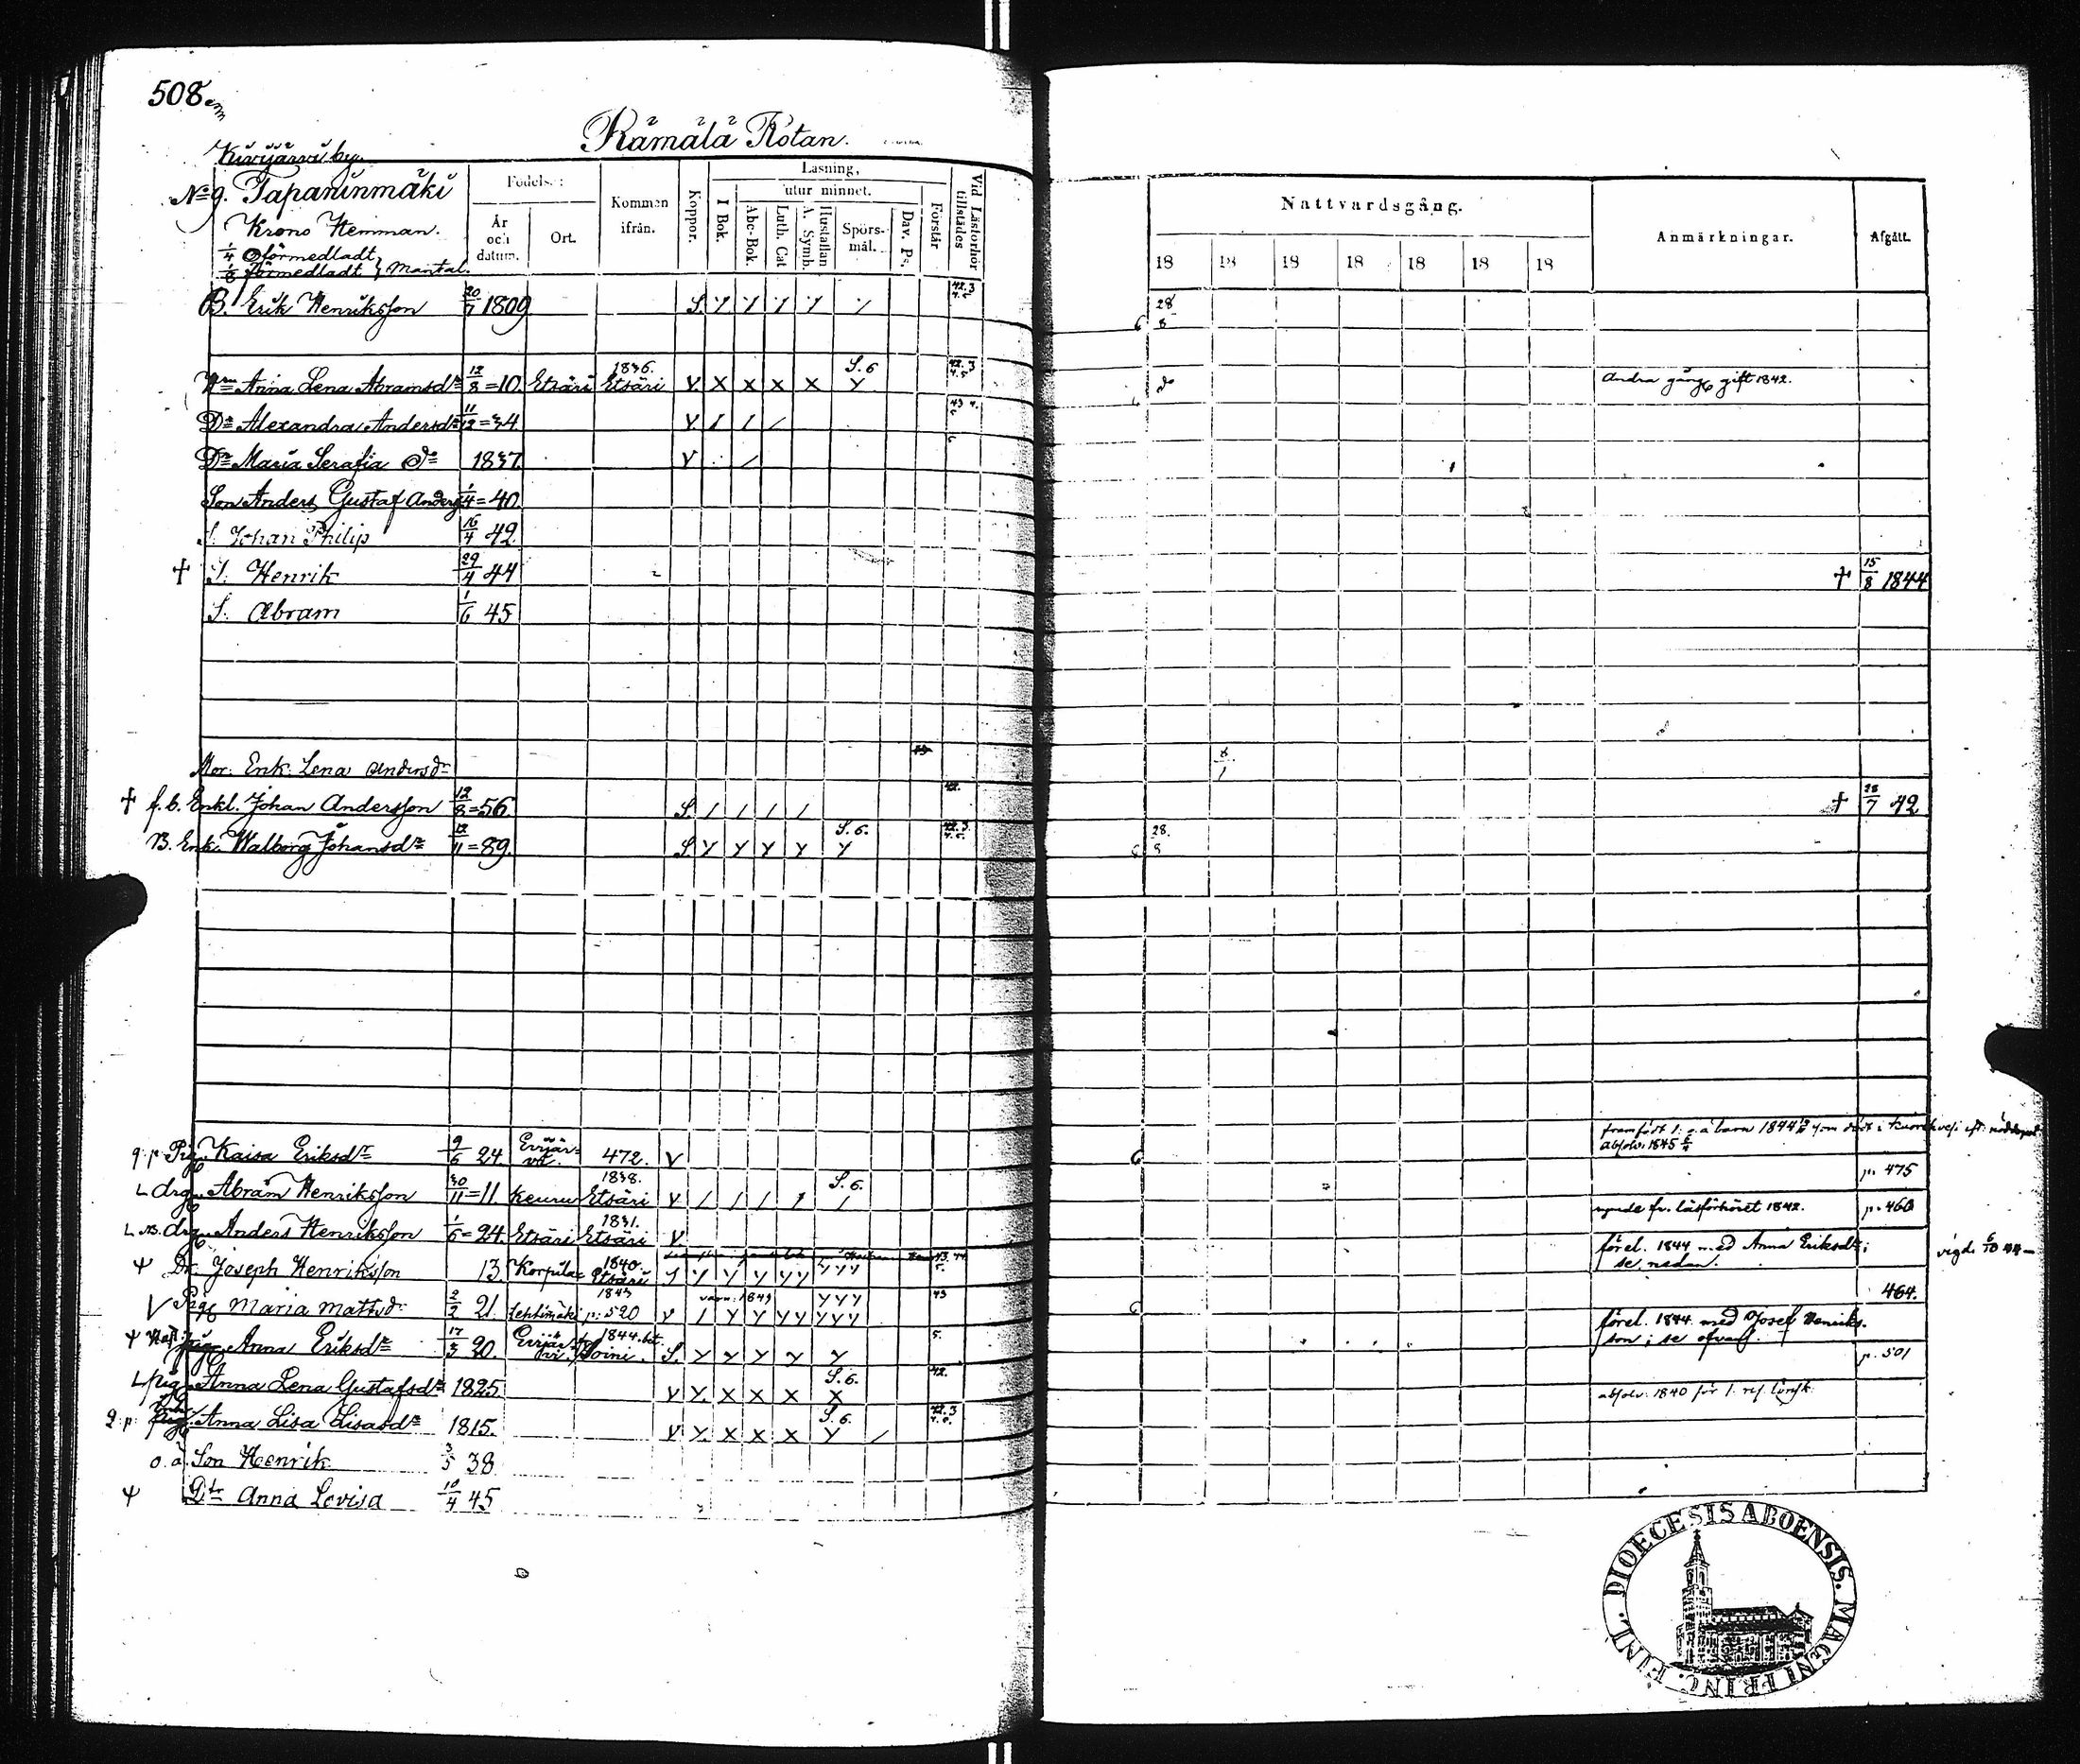 508
Rämälä Rotan.
Kivijärvi by.
No 9. Tapaninmäki
Krono Hemman.
1/4 Oförmedladt
1/6 förmedladt } Mantal.
Födelse:
År och datum.
Ort.
Kommen ifrån.
Koppor.
Läsning,
I Bok.
utur minnet.
Abc-Bok.
Luth. Cat
A. Symb.
Hustaflan
Spörs-mål.
Dav. Ps.
Förstår
Vid Läsförhör tillstädes
Nattvardsgång.
18 18 18 18 18 18 18
Anmärkningar.
Afgått.
B. Erik Henriksson 20/7 1809 S. 42.3 28/8
Anna Lena Abramsdr 12/8 =10. Etsäri 1836. Etsäri V. X X X X S.6 Y 42.3 do Andra gång gift 1842.
Dr Alexandra Andersdr 11/12 =34 V / / / 43 4.
Dr Maria Serafia do 1837. V /
Son Anders Gustaf Anders 1/4 =40.
S. Johan Philip 16/4 42
† S. Henrik 29/4 44 † 15/8 1844
S. Abram 1/6 45
Mor. Enk. Lena Andersdr
† f.b. Enkl. Johan Andersson 12/8 =56. S. / / / / 42. † 28/7 42
B. Enk. Walborg Johansdr 12/11 =89. S. Y Y Y Y S.6. Y 42.3. 28./8
q.p. Pig. Kaisa Eriksdr 9/6 24. Evijärvi. 472. V framfödt 1. o.ä barn 1844
absolv. 1845
L drg. Abram Henriksson 30/11 =11 Keuru 1838. Etsäri V / / / / S.6. / p. 475
L drg. Anders Henriksson 1/6 =24. Etsäri 1831. Etsäri V fr. läsförhöret 1842. p. 460
Dr. Joseph Henriksson 13. Korpila= 1840. Etsäri S Y Y Y YY YYY förel. 1844 med Anna Eriksdr; se nedan. vigde 6/10 44
V Pig. Maria Mattsdr 2/2 21. Lehtimäki 1843 p. 520 V / Y Y YY YYY 43 464.
Anna Eriksdr 17/3 20. Evijärvi. 1844. bet. Soini. S. Y Y Y Y Y 5. förel. 1844 med Josef Henriks-
son; se ofvan.
L pig. Anna Lena Gustafsdr 1825. V Y. X X X S.6. X 42. p. 501
q.p. Anna Lisa Lisasdr 1815. V Y. X X X S.6. Y / 42.3 absolv. 1840 för 1.
o.ä. Son Henrik 3/5 38
Dtr Anna Lovisa 10/4 45
DIOECESIS ABOENSIS. MAGNI PRINC. FINL.